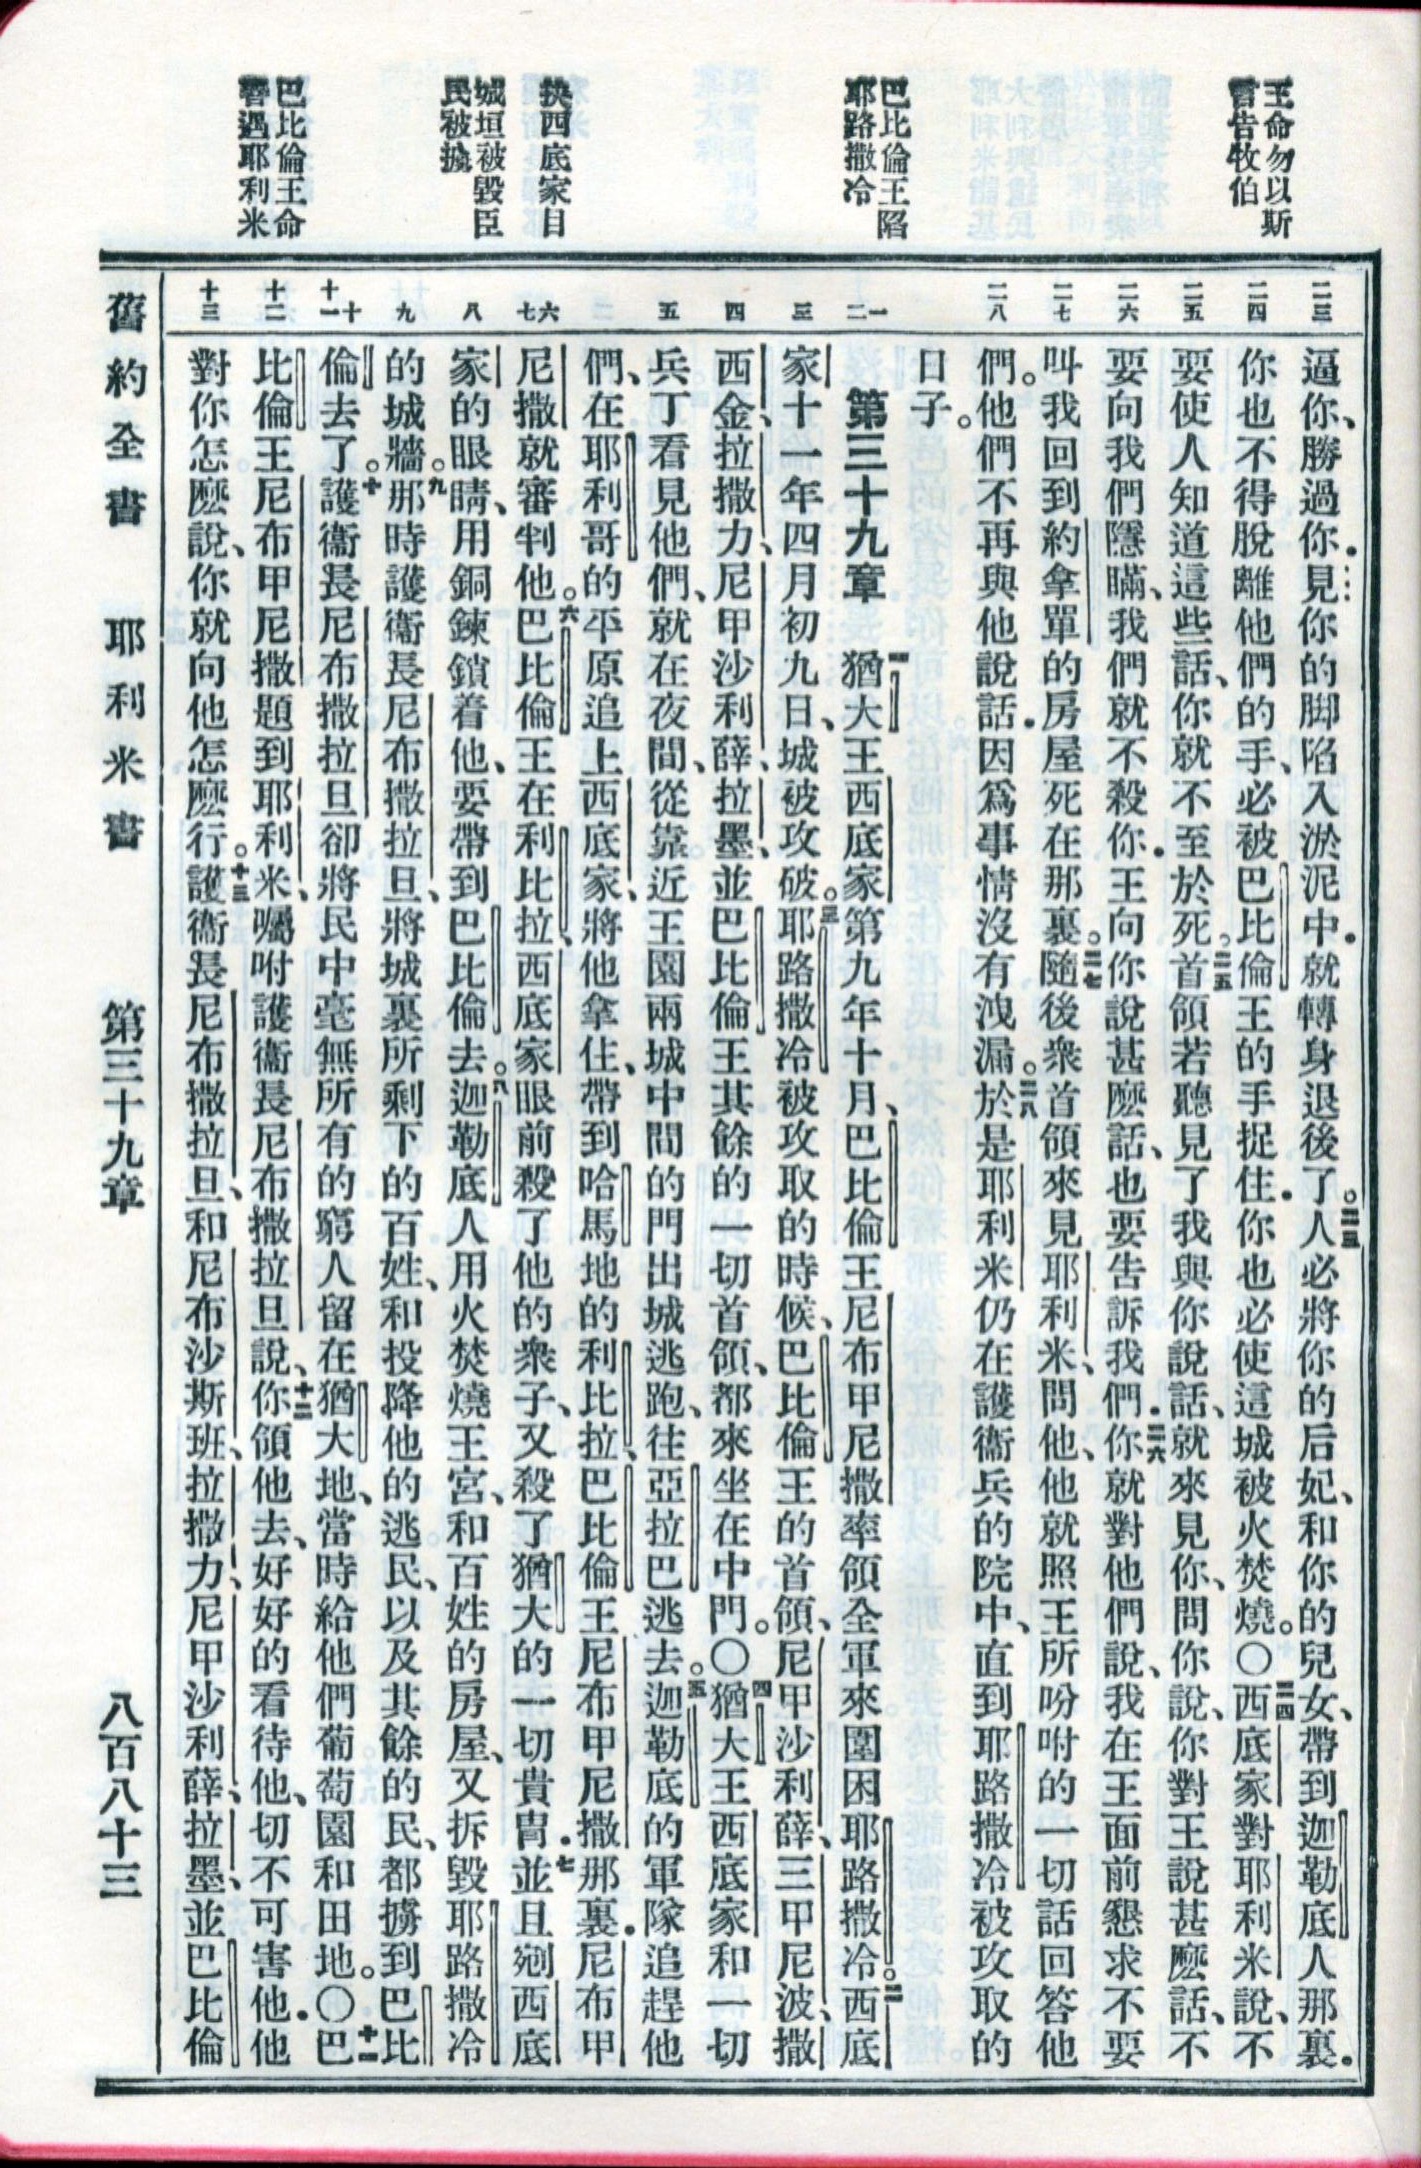 王命勿以斯
言告牧伯
巴比倫王陷
耶路撒冷
抉西底家目
城垣被毀臣
民被擄
巴比倫王命
善遇耶利米
二三
二四
二五
二六
二七
二八
一
二
三
四
五
六
七
八
九
十
十一
十二
十三
逼你、勝過你．見你的脚陷入淤泥中．就轉身退後了。二三人必將你的后妃、和你的兒女、帶到迦勒底人那裏．
你也不得脫離他們的手、必被巴比倫王的手捉住．你也必使這城被火焚燒。○二四西底家對耶利米說、不
要使人知道這些話、你就不至於死。二五首領若聽見了我與你說話、就來見你、問你說、你對王說甚麽話、不
要向我們隱瞞、我們就不殺你．王向你說甚麽話、也要告訴我們．二六你就對他們說、我在王面前懇求不要
叫我回到約拿單的房屋死在那裏。二七隨後衆首領來見耶利米、問他、他就照王所吩咐的一切話回答他
們。他們不再與他說話．因爲事情沒有洩漏。二八於是耶利米仍在護衞兵的院中、直到耶路撒冷被攻取的
日子。
第三十九章　一猶大王西底家第九年十月、巴比倫王尼布甲尼撒率領全軍來圍困耶路撒冷。二西底
家十一年四月初九日、城被攻破。三耶路撒冷被攻取的時候、巴比倫王的首領、尼甲沙利薛、三甲尼波、撒
西金、拉撒力、尼甲沙利薛、拉墨、並巴比倫王其餘的一切首領、都來坐在中門。○四猶大王西底家和一切
兵丁看見他們、就在夜間、從靠近王園兩城中間的門出城逃跑、往亞拉巴逃去。五迦勒底的軍隊追趕他
們、在耶利哥的平原追上西底家、將他拿住、帶到哈馬地的利比拉、巴比倫王尼布甲尼撒那裏．尼布甲
尼撒就審判他。六巴比倫王在利比拉、西底家眼前殺了他的衆子、又殺了猶大的一切貴冑．七並且剜西底
家的眼睛、用銅鍊鎖着他、要帶到巴比倫去。八迦勒底人用火焚燒王宮、和百姓的房屋、又拆毀耶路撒冷
的城牆。九那時護衞長尼布撒拉旦、將城裏所剩下的百姓、和投降他的逃民、以及其餘的民、都擄到巴比
倫去了。十護衞長尼布撒拉旦卻將民中毫無所有的窮人留在猶大地、當時給他們葡萄園和田地。○十一巴
比倫王尼布甲尼撒題到耶利米、囑咐護衞長尼布撒拉旦說、十二你領他去、好好的看待他、切不可害他．他
對你怎麽說、你就向他怎麽行。十三護衞長尼布撒拉旦、和尼布沙斯班、拉撒力、尼甲沙利薛、拉墨、並巴比倫
舊約全書　耶利米書　第三十九章　八百八十三